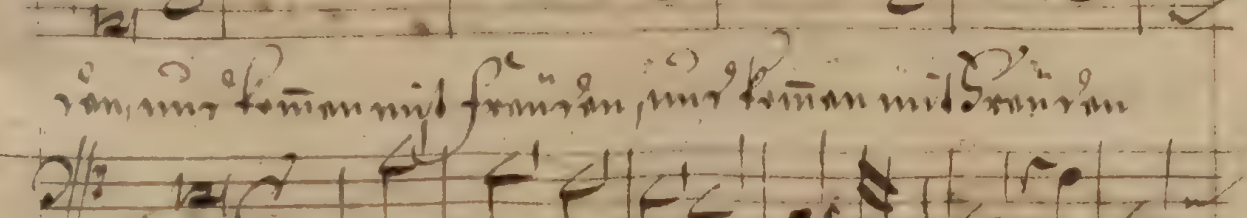 den, und kom̄en mit freuden, und kom̄en mit Freuden